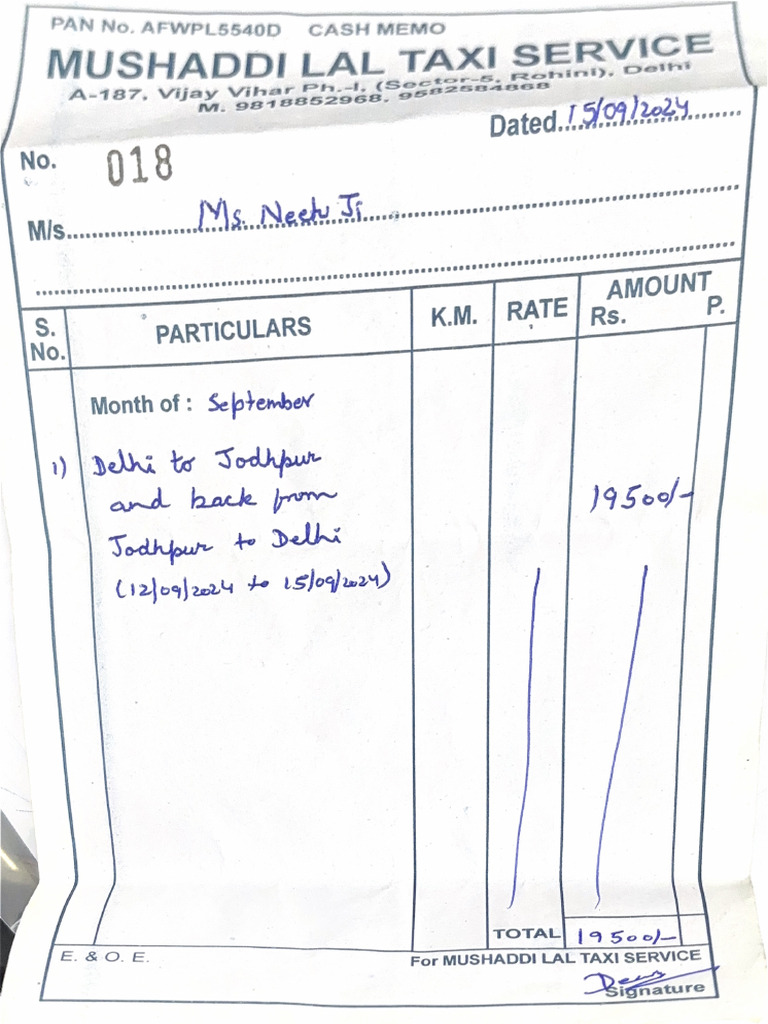 PAN No. AFWPL5540D CASH MEMO
MUSHADDI LAL TAXI SERVICE
A-187, Vijay Vihar Ph.-I, (Sector-5, Rohini), Delhi
M. 9818852968, 9582584868
Dated 15/09/2024
No. 018
M/s Ms. Neetu Ji
S. No. PARTICULARS K.M. RATE AMOUNT Rs. P.
Month of : September
1) Delhi to Jodhpur
and back from 19500/-
Jodhpur to Delhi
(12/09/2024 to 15/09/2024)
TOTAL 19500/-
E. & O. E. For MUSHADDI LAL TAXI SERVICE
Signature